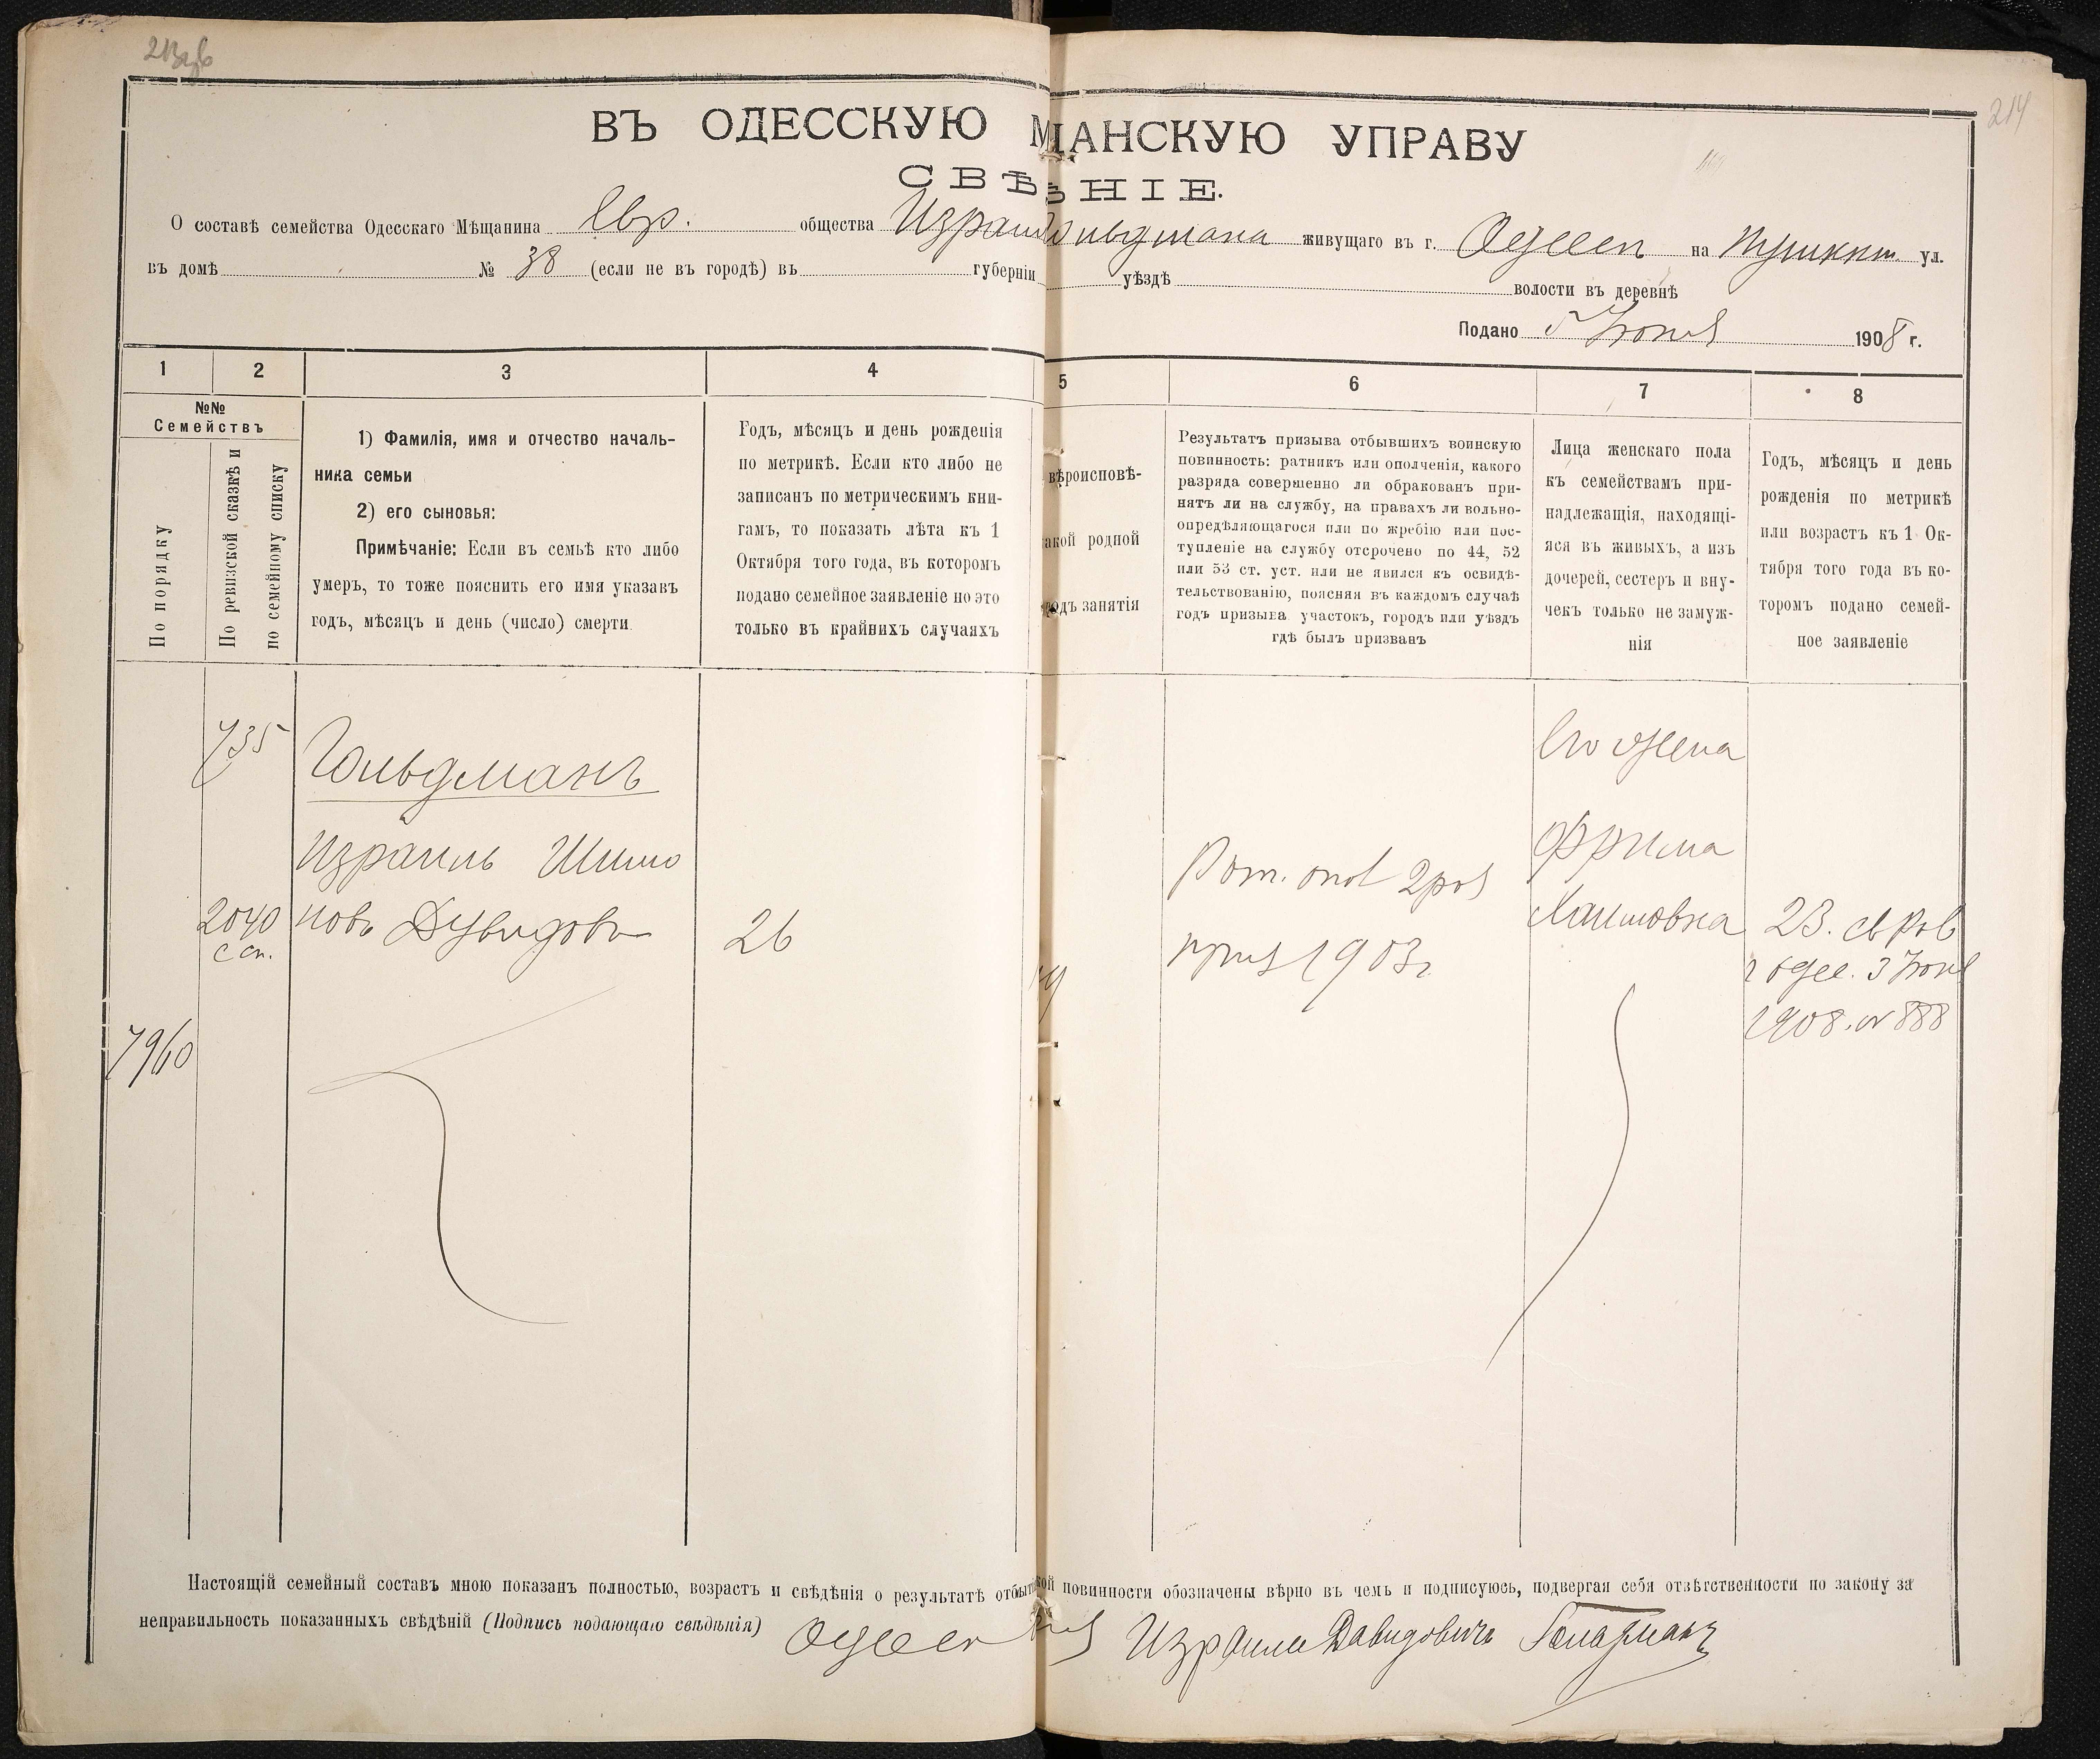 214
ВЪ ОДЕССКУЮ М ЩАНСКУЮ УПРАВУ
СВѢ НІЕ.
О составѣ семейства Одесскаго Мѣщанина Евр. общества Израиля Гольдмана живущаго въ г. Одессѣ на Пушкин. ул.
въ домѣ № 38 (если не въ городѣ) въ губерніи уѣздѣ волости въ деревнѣ
Подано 5 Іюня 1908 г.
1 2 3 4 5 6 7 8
№№
Семействъ
По порядку
По ревизской сказкѣ и
по семейному списку
1) Фамилія, имя и отчество началь-
ника семьи
2) его сыновья:
Примѣчаніе: Если въ семьѣ кто либо
умеръ, то тоже пояснить его имя указавъ
годъ, мѣсяцъ и день (число) смерти
Годъ, мѣсяцъ и день рожденія
по метрикѣ. Если кто либо не
записанъ по метрическимъ кни-
гамъ, то показать лѣта къ 1
Октября того года, въ которомъ
подано семейное заявленіе но это
только въ крайнихъ случаяхъ
вѣроисповѣ-
акой родной
родъ занятія
Результатъ призыва отбывшихъ воинскую
повинность: ратникъ или ополченія, какого
разряда совершенно ли обракованъ при-
нятъ ли на службу, на правахъ ли вольно-
опредѣляющагося или по жребію или пос-
тупленіе на службу отсрочено по 44, 52
или 53 ст. уст. или не явился къ освидѣ-
тельствованію, поясняя въ каждомъ случаѣ
годъ призыва участокъ, городъ или уѣздъ
гдѣ былъ призванъ
Лица женскаго пола
къ семействамъ при-
надлежащія, находящі-
яся въ живыхъ, а изъ
дочерей, сестеръ и вну-
чекъ только не замуж-
нія
Годъ, мѣсяцъ и день
рожденія по метрикѣ
или возрастъ къ 1 Ок-
тября того года въ ко-
торомъ подано семей-
ное заявленіе
735
Гольдманъ
Израиль Шимо
2040 новъ Дувидовъ 26
с сп.
7960
Рат. опол 2 раз
приз 1903 г
Его жена
Фрима
Хаимовна
23. св Рав
г Одес. 3 Іюня
1908. № 888
Настоящій семейный составъ мною показанъ полностью, возрастъ и свѣдѣнія о результатѣ отбыт кой повинности обозначены вѣрно въ чемъ и подписуюсь, подвергая себя отвѣтственности по закону за
неправильность показанныхъ свѣдѣній (Подпись подающаго свѣдѣнія) Израиль Давидовичъ Гольдманъ